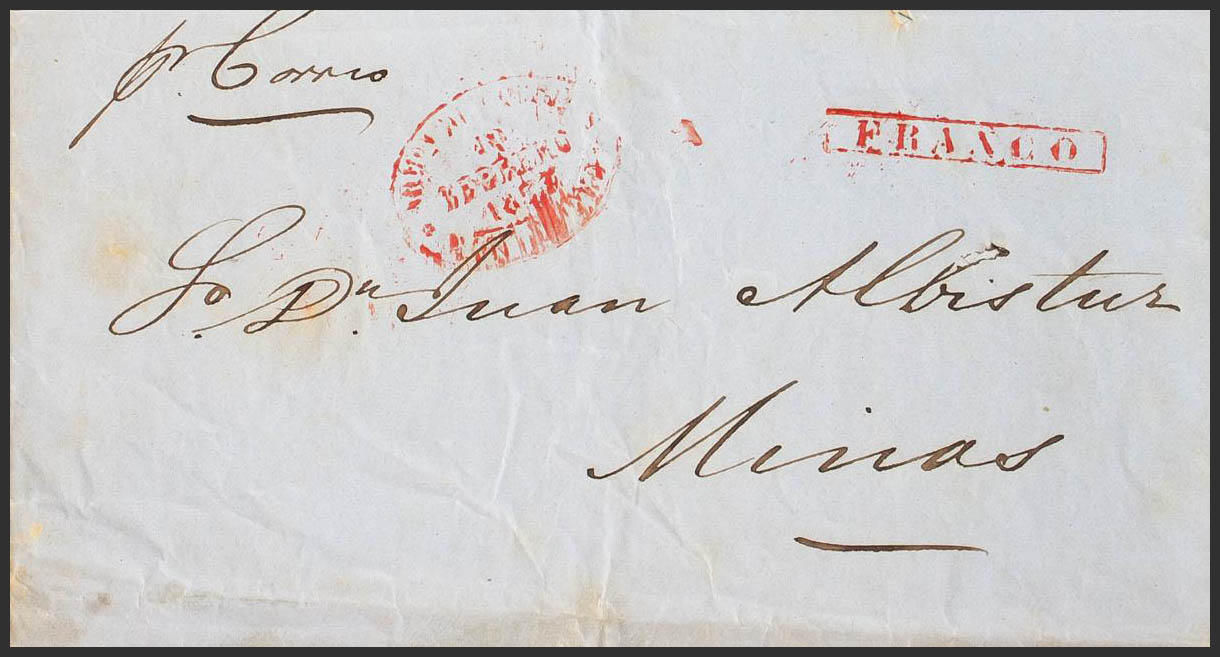 pr. Correo
FRANCO
Sor. Dn. Juan Albistur
Minas